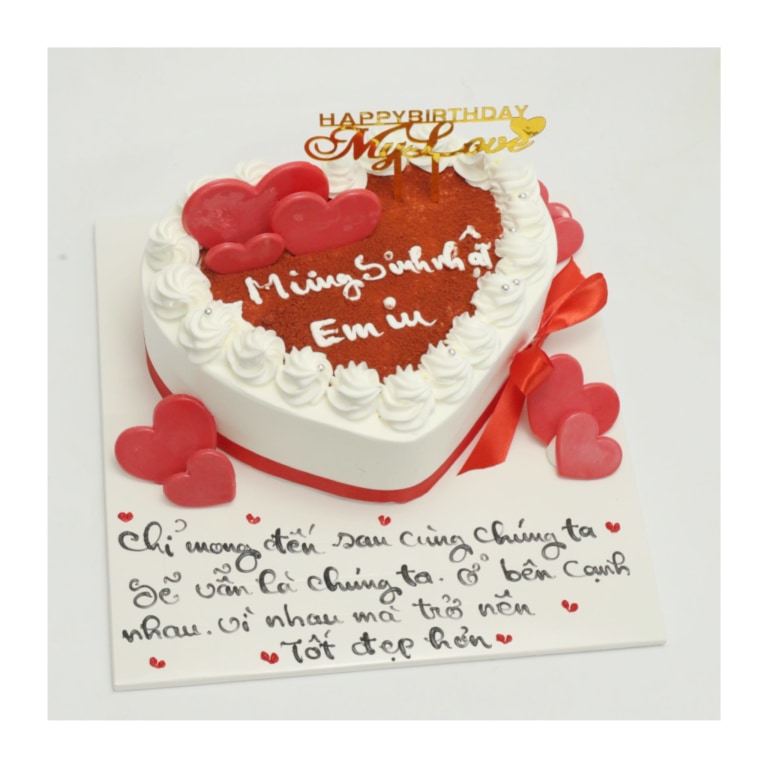 HAPPYBIRTHDAY
My Love
Mừng Sinh nhật
Em iu
Chỉ mong đến sau cùng chúng ta
Sẽ vẫn là chúng ta. Ở bên cạnh
nhau. Vì nhau mà trở nên
Tốt đẹp hơn